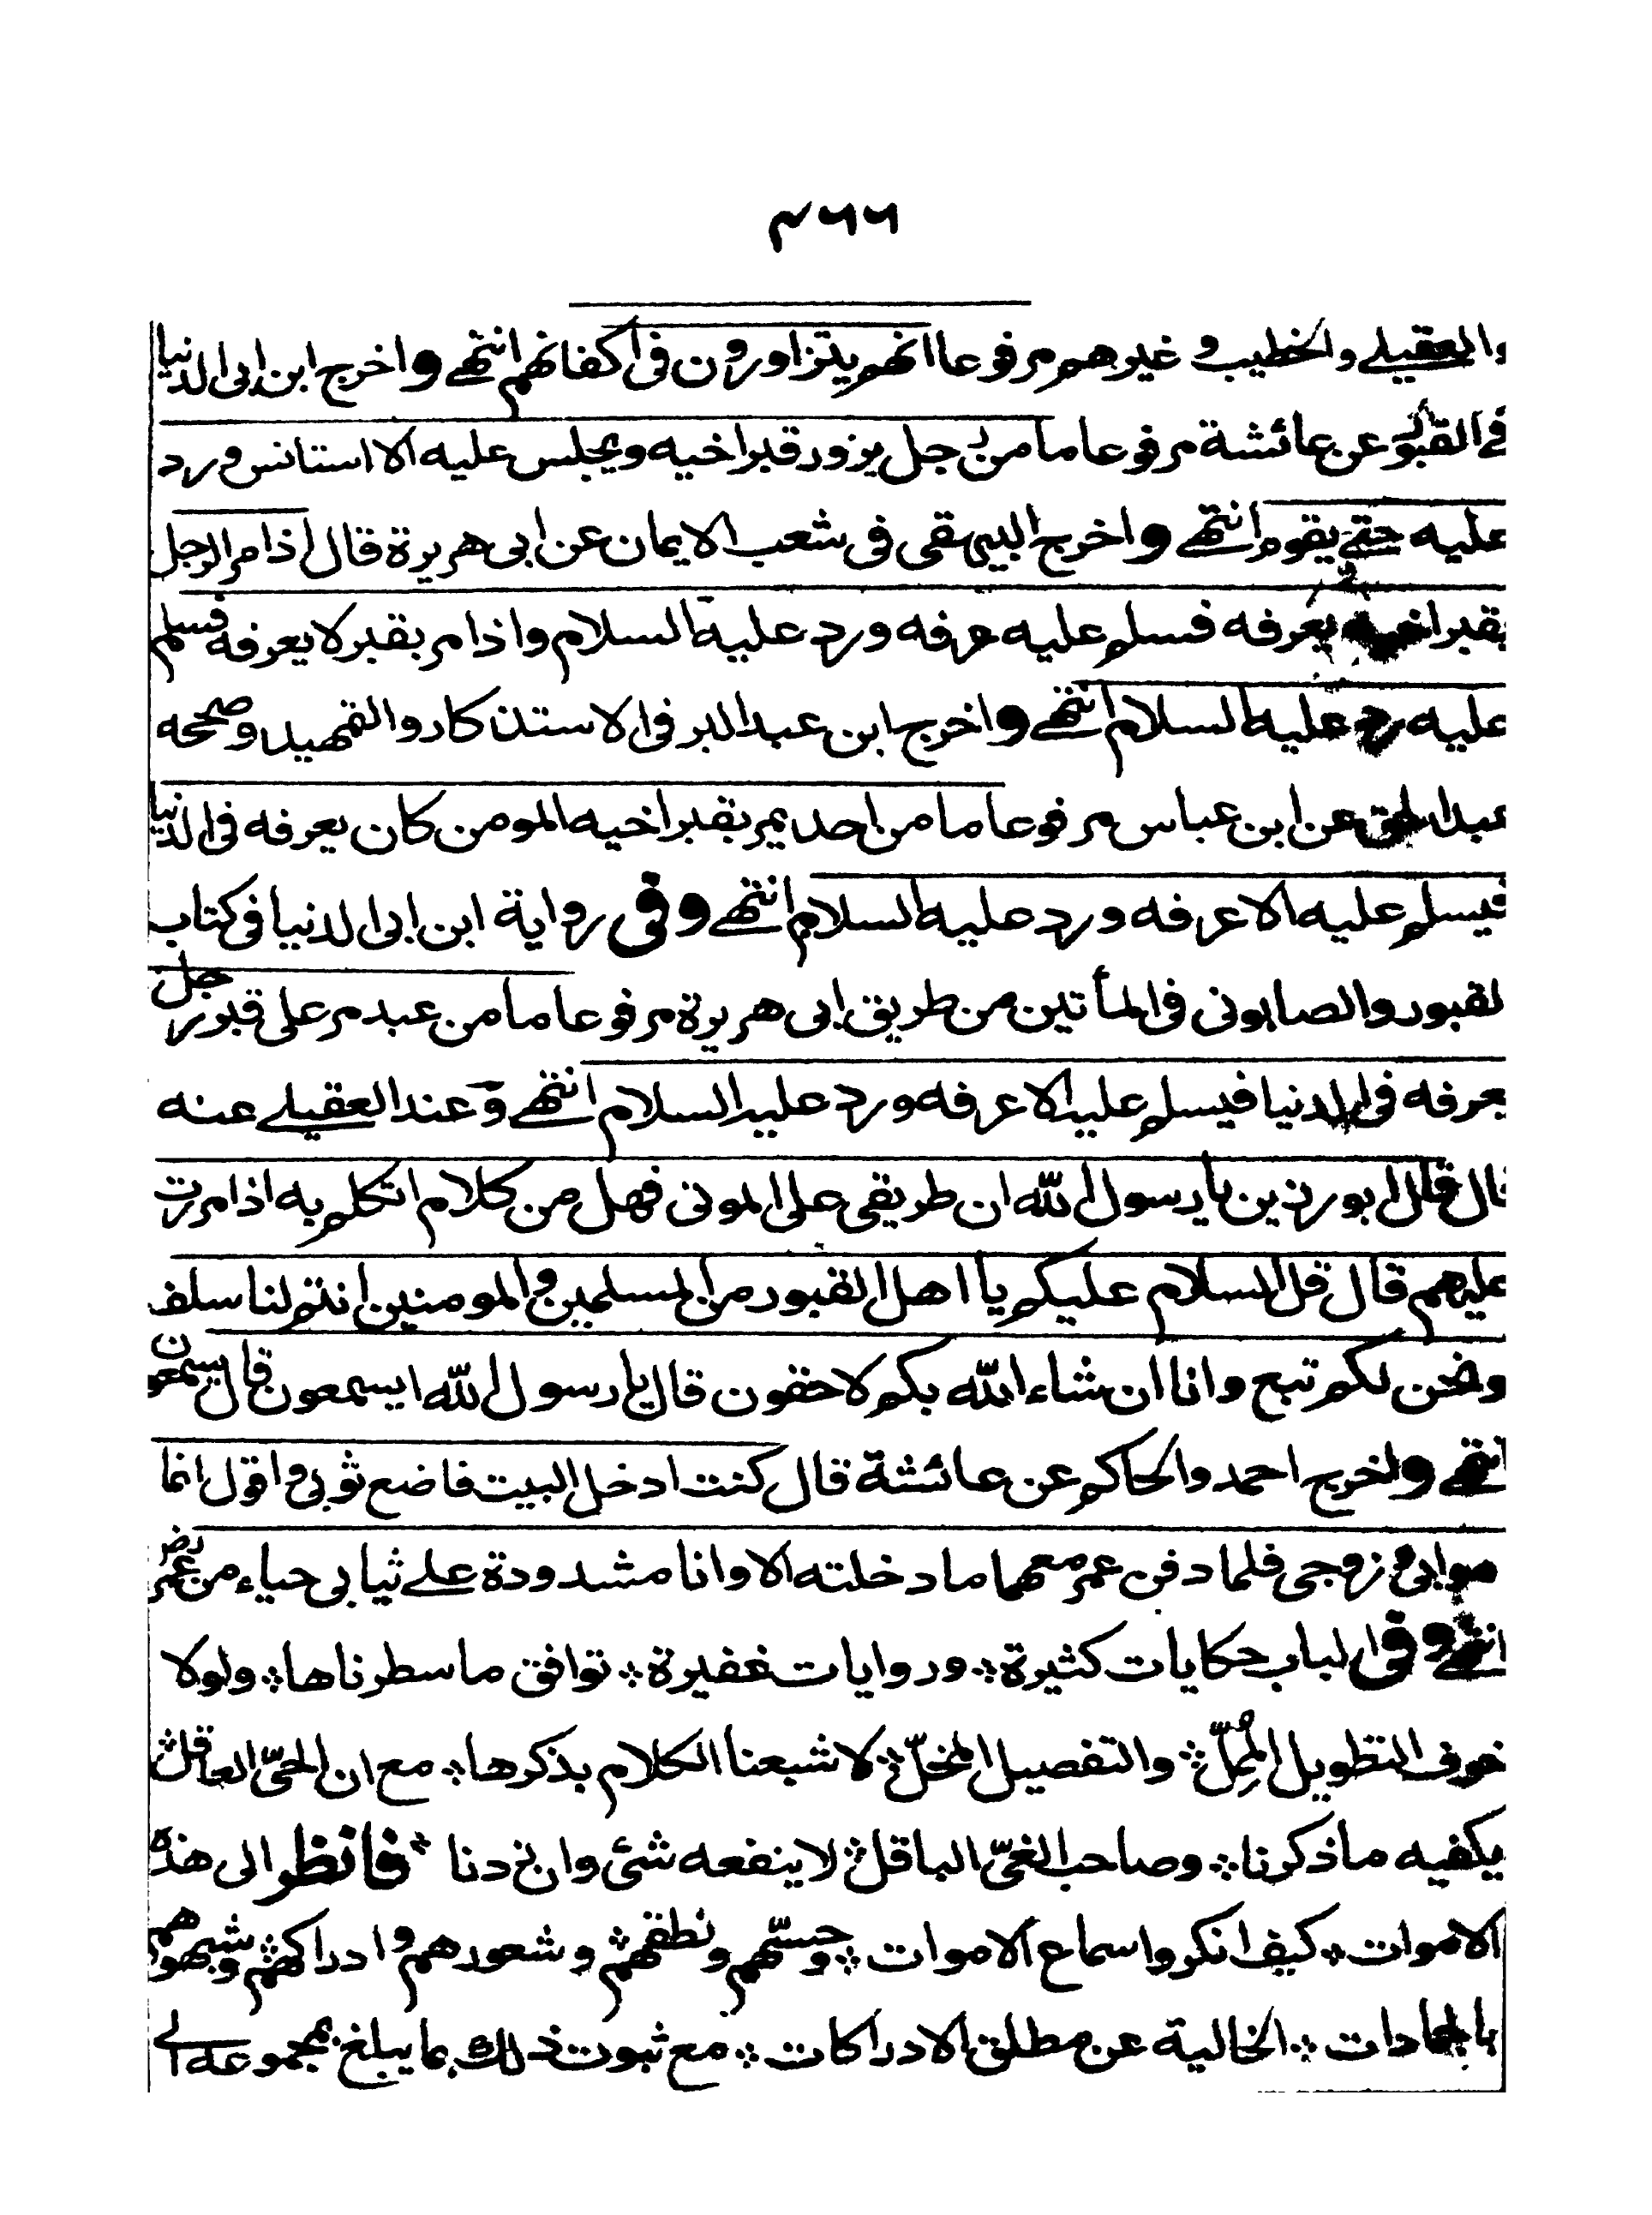 ٤٦٦
والعقيلے والخطيب و غيرهم مرفوعا انهم يتزاورون فى اكفانهم انتهے واخرج ابن ابى الدنيا
فے القبور عن عائشة مرفوعا ما من رجل يزور قبر اخيه ويجلس عليه الا استانس و رد
عليه حتے يقوم انتهے واخرج البيهقى فى شعب الايمان عن ابى هريرة قال اذا مر الرجل
بقبر اخيه يعرفه فسلم عليه عرفه ورد عليه السلام واذا مر بقبر لا يعرفه فسلم
عليه رد عليه السلام انتهے واخرج ابن عبد البر فى الاستذكار والتمهيد وصححه
عبد الحق عن ابن عباس مرفوعا ما من احد يمر بقبر اخيه المومن كان يعرفه فى الدنيا
فيسلم عليه الا عرفه ورد عليه السلام انتهے وفى رواية ابن ابى الدنيا فى كتاب
لقبور والصابونى فى المأتين من طريق ابى هريرة مرفوعا ما من عبد مر على قبر رجل
يعرفه فى الدنيا فيسلم عليه الا عرفه ورد عليه السلام انتهے وعند العقيلے عنه
قال قال ابو رزين يا رسول الله ان طريقى على الموتى فهل من كلام اتكلم به اذا مررت
عليهم قال قل السلام عليكم يا اهل القبور من المسلمين والمومنين انتم لنا سلف
ونحن لكم تبع وانا ان شاء الله بكم لاحقون قال يا رسول الله ايسمعون قال يسمعون
انتهے واخرج احمد والحاكم عن عائشة قال كنت ادخل البيت فاضع ثوبى واقول انما
هو ابى وزوجى فلما دفن عمر معهما ما دخلته الا وانا مشدودة علے ثيابى حياء من عمر رض
انتهے وفى الباب حكايات كثيرة ؞ وروايات غفيرة ؞ توافق ما سطرناها ؞ ولولا
خوف التطويل المُمِلّ ؞ والتفصيل المخلّ ؞ لاشبعنا الكلام بذكرها ؞ مع ان الحىّ العاقل ؞
يكفيه ما ذكرنا ؞ وصاحب الغىّ الباقل ؞ لا ينفعه شئ وان زدنا ؞ فانظر الى هذه
الاموات ؞ كيف انكروا سماع الاموات ؞ وحسّهم ونطقهم ؞ وشعورهم وادراكهم ؞ وشبهوهم
بالجمادات ؞ الخالية عن مطلق الادراكات ؞ مع ثبوت ذلك بما يبلغ بمجموعه الے